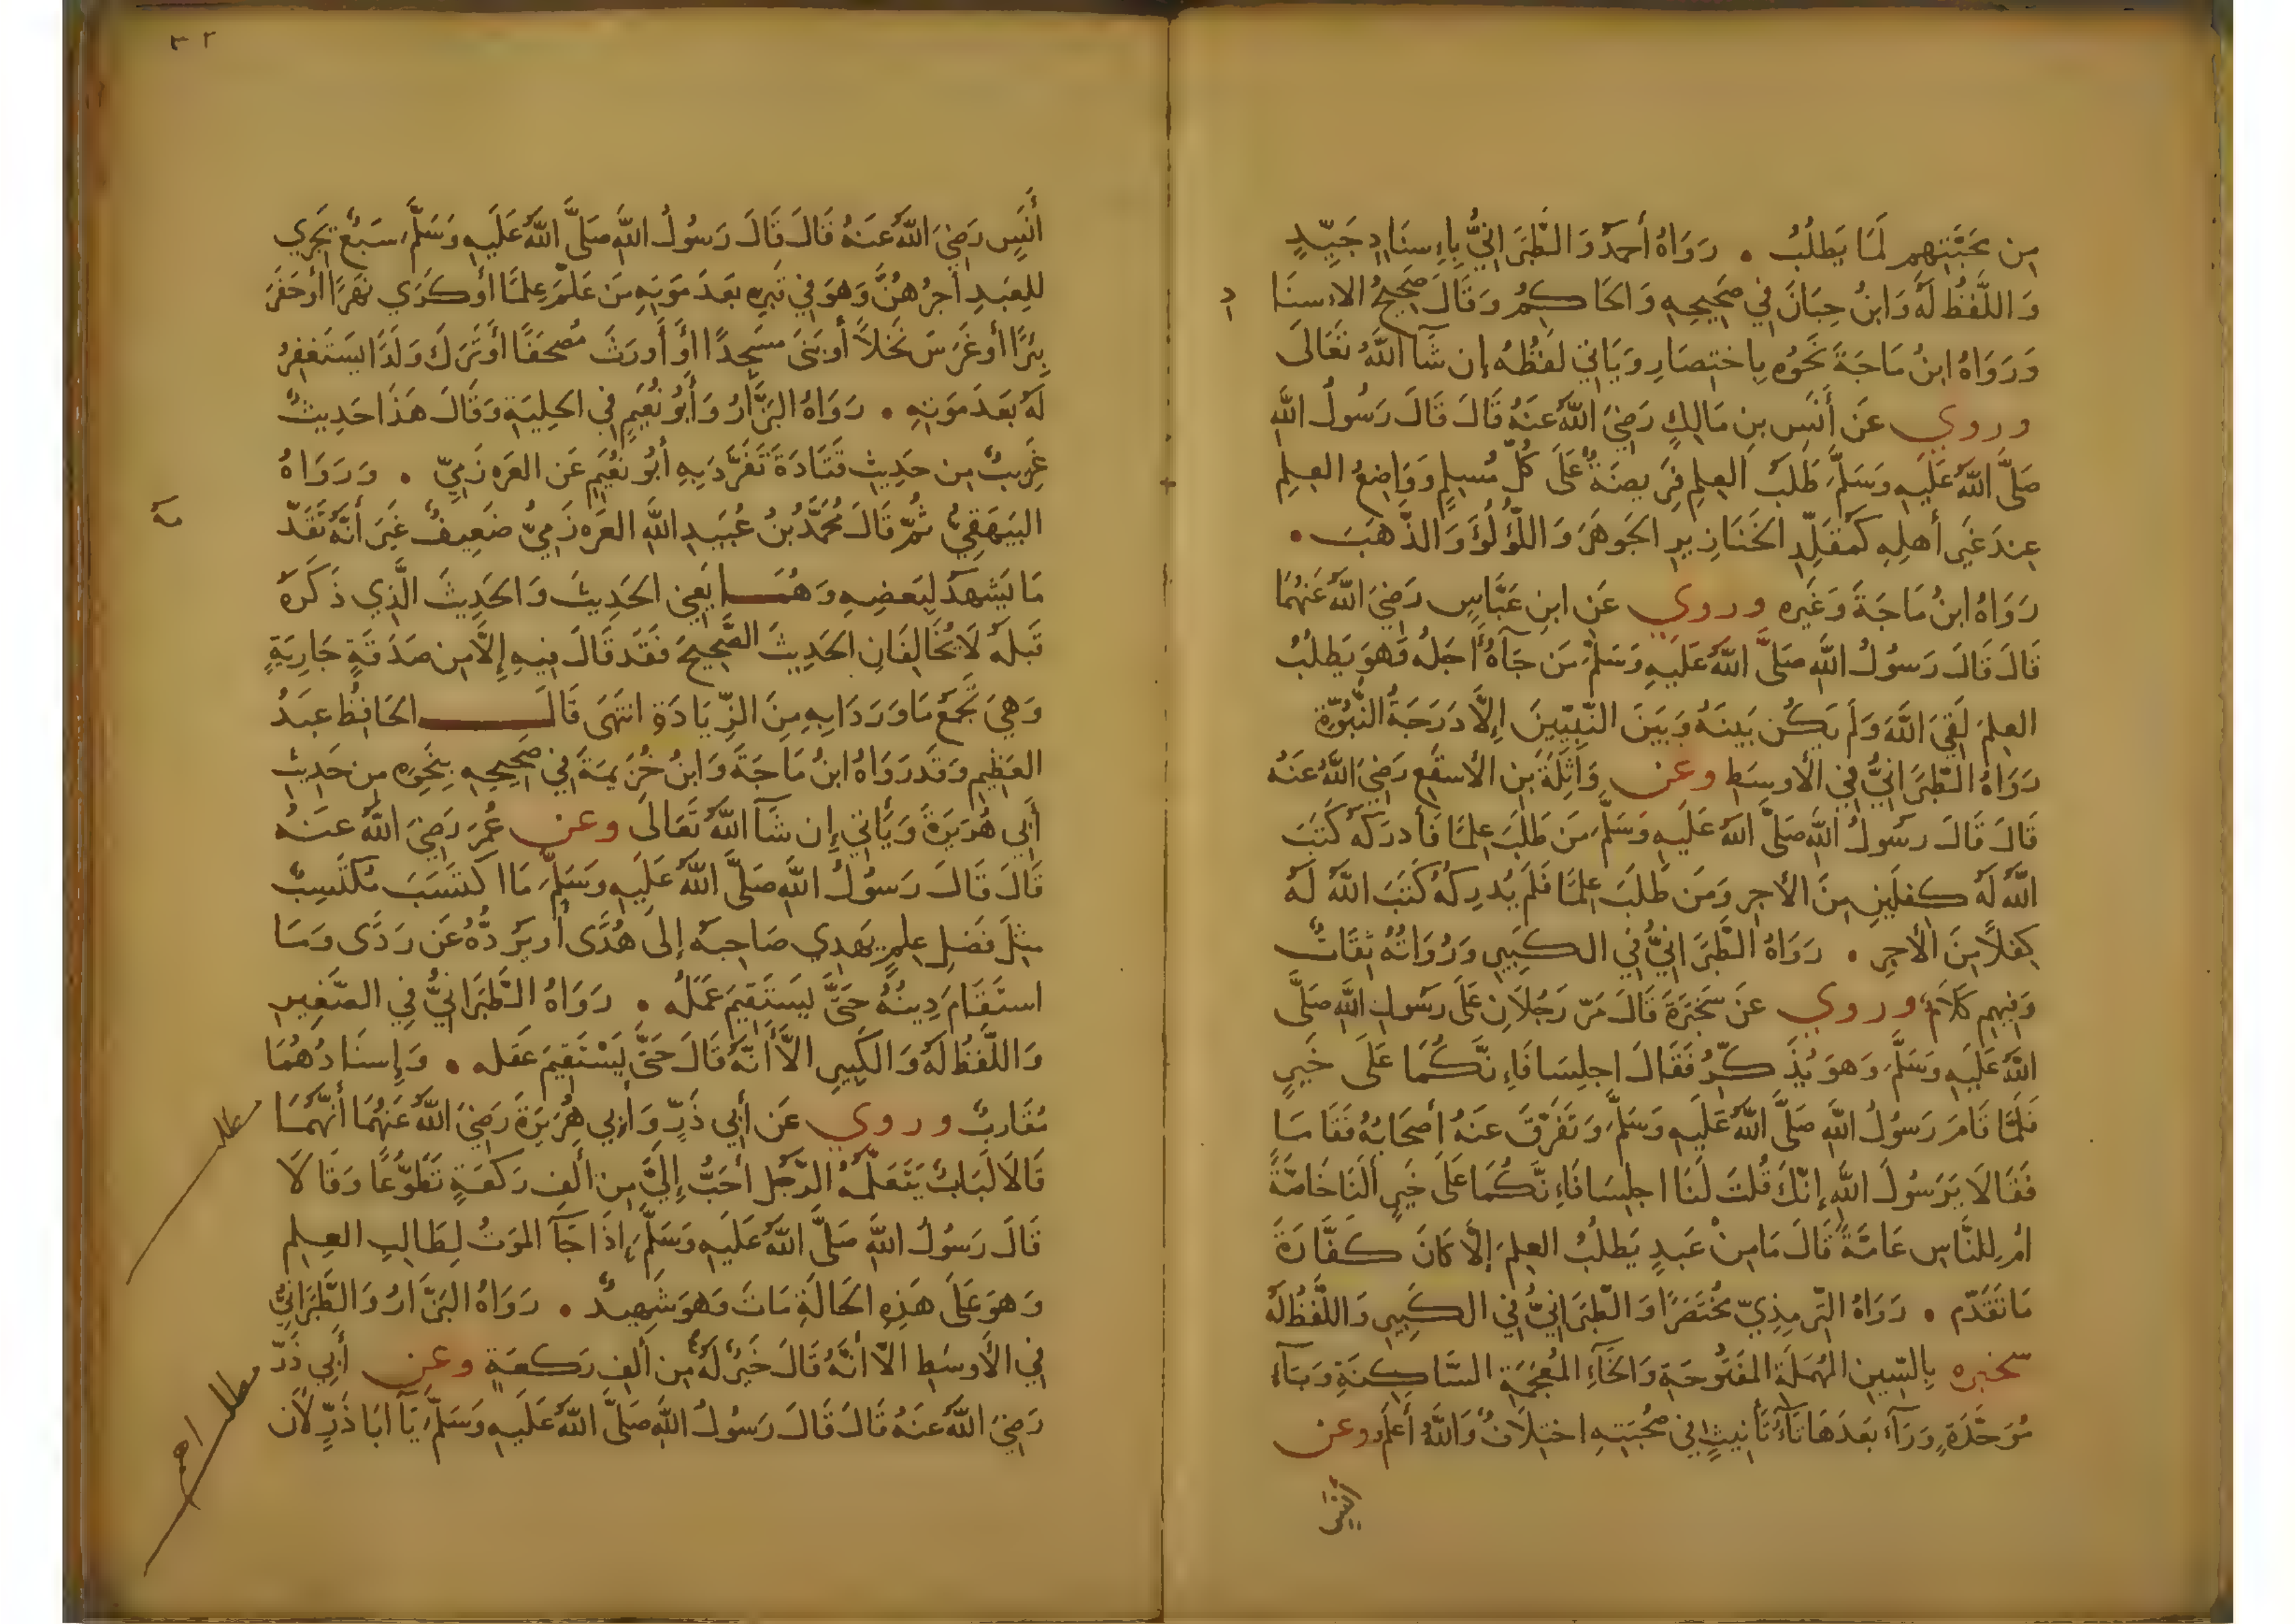 مِن مَحَبَّتِهِم لَمَا يَطلُبُ . رَوَاهُ أَحمَدُ وَالطَّبَرَانِيُّ بِإِسنَادٍ جَيِّدٍ
وَاللَّفظُ لَهُ وَابنُ حِبَانَ فِي صَحِيحِهِ وَالحَاكِمُ وَقَالَ صَحِيحُ الاِسنَا
د
وَرَوَاهُ ابنُ مَاجَةَ نَحوُهِ بِاختِصَارِ وَيَاتِي لَفظُهُ إِن شَآ اللَّهُ تَعَالَى
وروي عَن أَنَسِ بنِ مَالِكٍ رَضِيَ اللَّهُ عَنهُ قَالَ قَالَ رَسُولُ اللَّهِ
صَلَّى اللَّهُ عَلَيهِ وَسَلَّمَ طَلَبُ العِلمِ فَرِيضَةٌ عَلَى كُلِّ مُسلِمٍ وَوَاضِعُ العِلمِ
عِندَ غَيرِ أَهلِهِ كَمُقَلِّدِ الخَنَازِيرِ الجَوهَرَ وَاللُّؤلُؤَ وَالذَّهَبَ .
رَوَاهُ ابنُ مَاجَةَ وَغَيرِه وروي عَنِ ابنِ عَبَّاسٍ رَضِيَ اللَّهُ عَنهُمَا
قَالَ قَالَ رَسُولُ اللَّهِ صَلَّى اللَّهُ عَلَيهِ وَسَلَّمَ مَن جَآهُ أَجَلُهُ وَهوَ يَطلُبُ
العِلمَ لَقِيَ اللَّهَ وَلَم يَكُن بَينَهُ وَبَينَ النَّبِيِّينَ إِلَّا دَرَجَةُ النُّبُوَّةِ
رَوَاهُ الطَّبَرَانِيُّ فِي الأَوسَطِ وعن وَاثِلَةَ بنِ الأَسقَعِ رَضِيَ اللَّهُ عَنهُ
قَالَ قَالَ رَسُولُ اللَّهِ صَلَّى اللَّهُ عَلَيهِ وَسَلَّمَ مَن طَلَبَ عِلمًا فَأَدرَكَهُ كَتَبَ
اللَّهُ لَهُ كِفلَينِ مِنَ الأَجرِ وَمَن طَلَبَ عِلمًا فَلَم يُدرِكهُ كَتَبَ اللَّهُ لَهُ
كِفلًا مِنَ الأَجرِ . رَوَاهُ الطَّبَرَانِيُّ فِي الكَبِيرِ وَرُوَاتُهُ ثِقَاتٌ
وَفِيهِم كَلَامٌ وروي عَن سَخبَرَةَ قَالَ مَرَّ رَجُلَانِ عَلَى رَسُولِ اللَّهِ صَلَّى
اللَّهُ عَلَيهِ وَسَلَّمَ وَهوَ يُذَكِّرُ فَقَالَ اجلِسَا فَإِنَّكُمَا عَلَى خَيرٍ
فَلَمَّا قَامَ رَسُولُ اللَّهِ صَلَّى اللَّهُ عَلَيهِ وَسَلَّمَ وَتَفَرَّقَ عَنهُ أَصحَابُهُ فَقَامَا
فَقَالَا يَرَسُولَ اللَّهِ إِنَّكَ قُلتَ لَنَا اجلِسَا فَإِنَّكُمَا عَلَى خَيرٍ أَلَنَا خَاصَّةً
أم لِلنَّاسِ عَامَّةً قَالَ مَا مِن عَبدٍ يَطلُبُ العِلمَ إِلَّا كَانَ كَفَّارَةَ
مَا تَقَدَّم . رَوَاهُ التِّرمِذِيّ مُختَصَرًا وَالطَّبَرَانِيُّ فِي الكَبِيرِ وَاللَّفظُ لَهُ
سخبره بِالسِّينِ المُهمَلَةِ المَفتُوحَةِ وَالخَآءِ المُعجَمَةِ السَّاكِنَةِ وَبَآءٍ
مُوَحَّدَةٍ وَرَآءٍ بَعدَهَا تَآءُ تَأنِيثٍ فِي صُحبَتِهِ اختِلَافٌ وَاللَّهُ أَعلَمُ وعن
أَنَسٍ
٣٢
أَنَسٍ رَضِيَ اللَّهُ عَنهُ قَالَ قَالَ رَسُولُ اللَّهِ صَلَّى اللَّهُ عَلَيهِ وَسَلَّمَ سَبعٌ يَجرِي
لِلعَبدِ أَجرُهُنَّ وَهوَ فِي قَبرِهِ بَعدَ مَوتِهِ مَن عَلَّمَ عِلمًا أَو كَرَى نَهرًا أَو حَفَرَ
بِئرًا أَو غَرَسَ نَخلًا أَو بَنَى مَسجِدًا أَو أَورَثَ مُصحَفًا أَو تَرَكَ وَلَدًا يَستَغفِرُ
لَهُ بَعدَ مَوتِهِ . رَوَاهُ البَزَّارُ وَأَبُو نُعَيمٍ فِي الحِليَةِ وَقَالَ هَذَا حَدِيثٌ
غَرِيبٌ مِن حَدِيثِ قَتَادَةَ تَفَرَّدَ بِهِ أَبُو نُعَيمٍ عَنِ العَرزَمِيِّ . وَرَوَاهُ
البَيهَقِيُّ ثُمَّ قَالَ مُحَمَّدُ بنُ عُبَيدِ اللَّهِ العَرزَمِيُّ ضَعِيفٌ غَيرَ أَنَّهُ تَقَدَّ
مَهُ
مَا يَشهَدُ لِبَعضِهِ وَهُمَا يَعنِي الحَدِيثَ وَالحَدِيثَ الَّذِي ذَكَرَهُ
قَبلَهُ لَا يُخَالِفَانِ الحَدِيثَ الصَّحِيحَ فَقَد قَالَ فِيهِ إِلَّا مِن صَدَقَةٍ جَارِيَةٍ
وَهِيَ تَجمَعُ مَا وَرَدَا بِهِ مِنَ الزِّيَادَةِ انتَهَى قَالَ الحَافِظُ عَبدُ
العَظِيمِ وَقَد رَوَاهُ ابنُ مَاجَةَ وَابنُ خُزَيمَةَ فِي صَحِيحِهِ بِنَحوِهِ مِن حَدِيثِ
أَبِي هُرَيرَةَ وَيَأتِي إِن شَآ اللَّهُ تَعَالَى وعن عُمَرَ رَضِيَ اللَّهُ عَنهُ
قَالَ قَالَ رَسُولُ اللَّهِ صَلَّى اللَّهُ عَلَيهِ وَسَلَّمَ مَا اكتَسَبَ مُكتَسِبٌ
مِثلَ فَضلِ عِلمٍ يَهدِي صَاحِبَهُ إِلَى هُدًى أَو يَرُدُّهُ عَن رَدًى وَمَا
استَقَامَ دِينُهُ حَتَّى يَستَقِيمَ عَمَلُه . رَوَاهُ الطَّبَرَانِيُّ فِي الصَّغِيرِ
وَاللَّفظُ لَهُ وَالكَبِيرِ الَّا أَنَّهُ قَالَ حَتَّى يَستَقِيمَ عَقله . وَإِسنَادُهُمَا
مُقَارِبٌ وروي عَن أَبِي ذَرٍّ وَأَبِي هُرَيرَةَ رَضِيَ اللَّهُ عَنهُمَا أَنَّهُمَا
قَالَا لَبَابٌ يَتَعَلَّمُهُ الرَّجُلُ أَحَبُّ إِلَيَّ مِن أَلفِ رَكعَةٍ تَطَوُّعًا وَقَالَا
قَالَ رَسُولُ اللَّهِ صَلَّى اللَّهُ عَلَيهِ وَسَلَّمَ إِذَا جَآ المَوتُ لِطَالِبِ العِلمِ
وَهوَ عَلَى هَذِهِ الحَالَةِ مَاتَ وَهوَ شَهِيدٌ . رَوَاهُ البَزَّارُ وَالطَّبَرَانِيُّ
فِي الأَوسَطِ الَّا أَنَّهُ قَالَ خَيرٌ لَهُ مِن أَلفِ رَكعَةٍ وعن أَبِي ذَرٍّ
رَضِيَ اللَّهُ عَنهُ قَالَ قَالَ رَسُولُ اللَّهِ صَلَّى اللَّهُ عَلَيهِ وَسَلَّمَ يَآ ابَا ذَرٍّ لَأَن